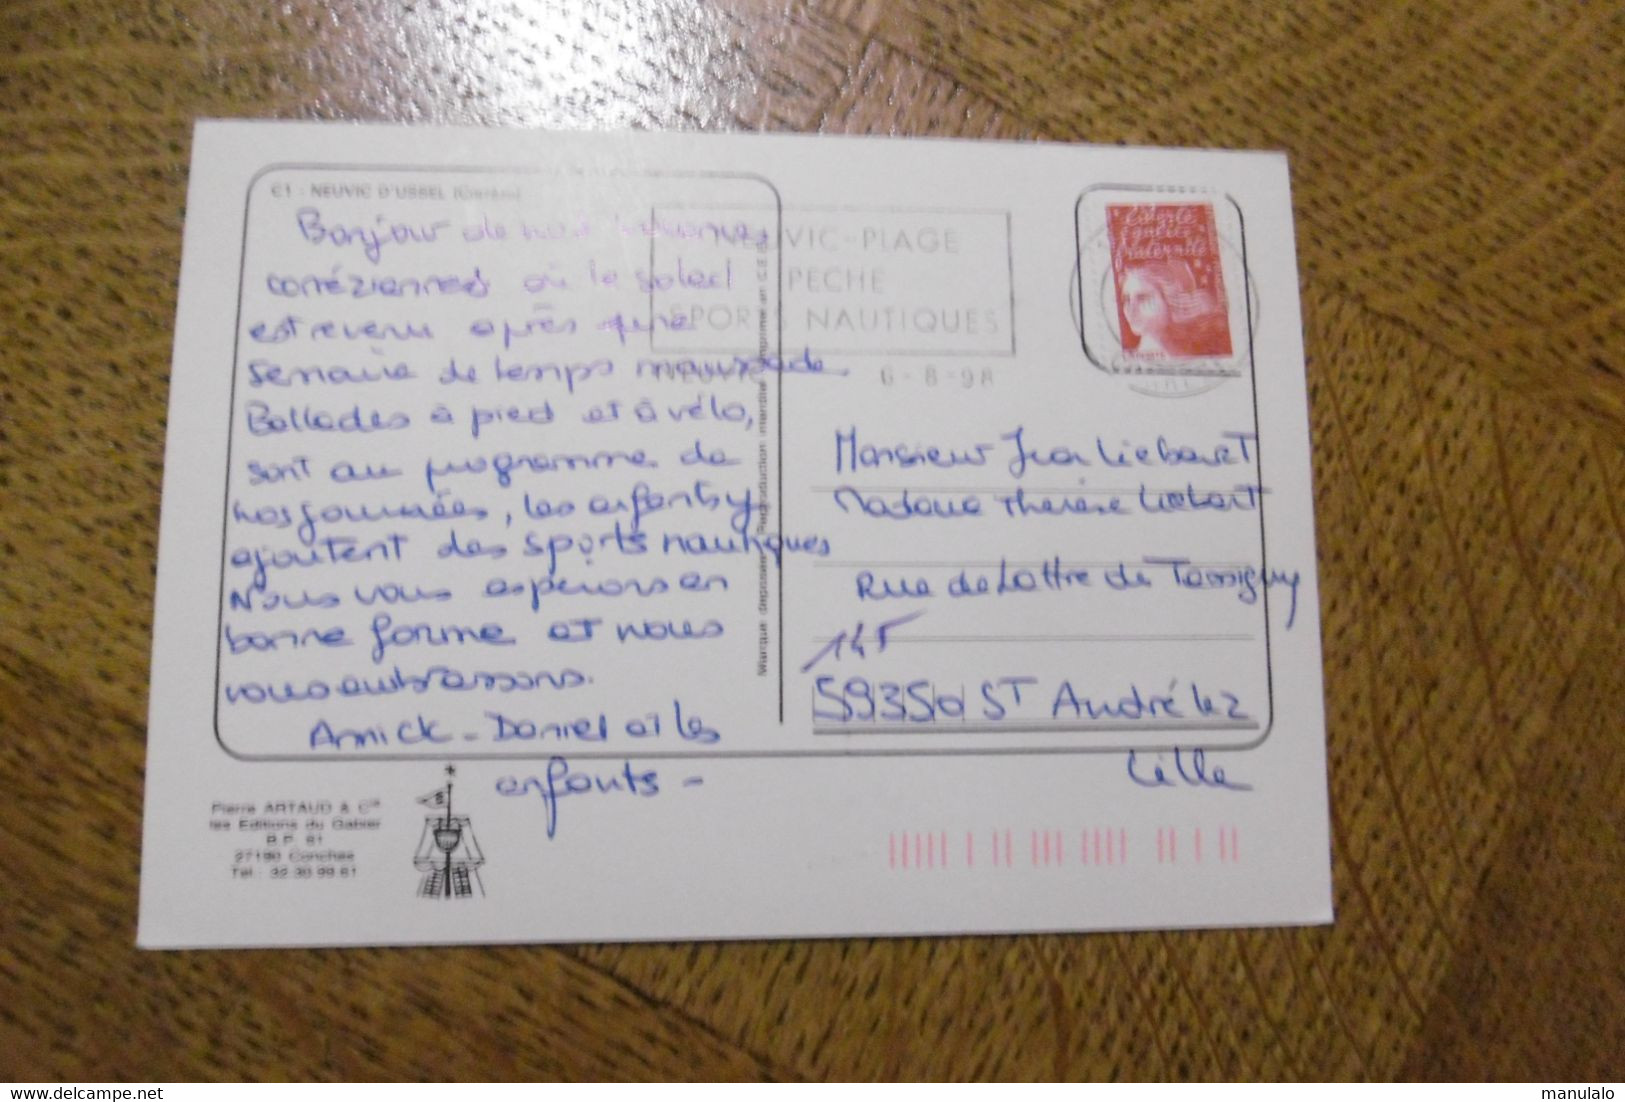 C1 - NEUVIC D'USSEL (Corrèze)
Bonjour de nos vacances
corréziennes où le soleil
est revenu après une
semaine de temps maussade.
Ballades à pied et à vélo,
sont au programme de
nos journées, les enfants y
ajoutent des sports nautiques
Nous vous espérons en
bonne forme et nous
vous embrassons.
Annick - Daniel et les
enfants -
Pierre ARTAUD & Cie
les Editions du Gabier
B.P. 61
27190 Conches
Tél : 32 30 99 61
Marque déposée Reproduction interdite Imprimé en C.E.E.
NEUVIC-PLAGE
PECHE
SPORTS NAUTIQUES
NEUVIC
6-8-98
Liberté
égalité
fraternité
LA POSTE
Monsieur Jean Liebart
Madame Thérèse Liebart
Rue de Lattre de Tassigny
145
59350 ST André lez
Lille
manulalo